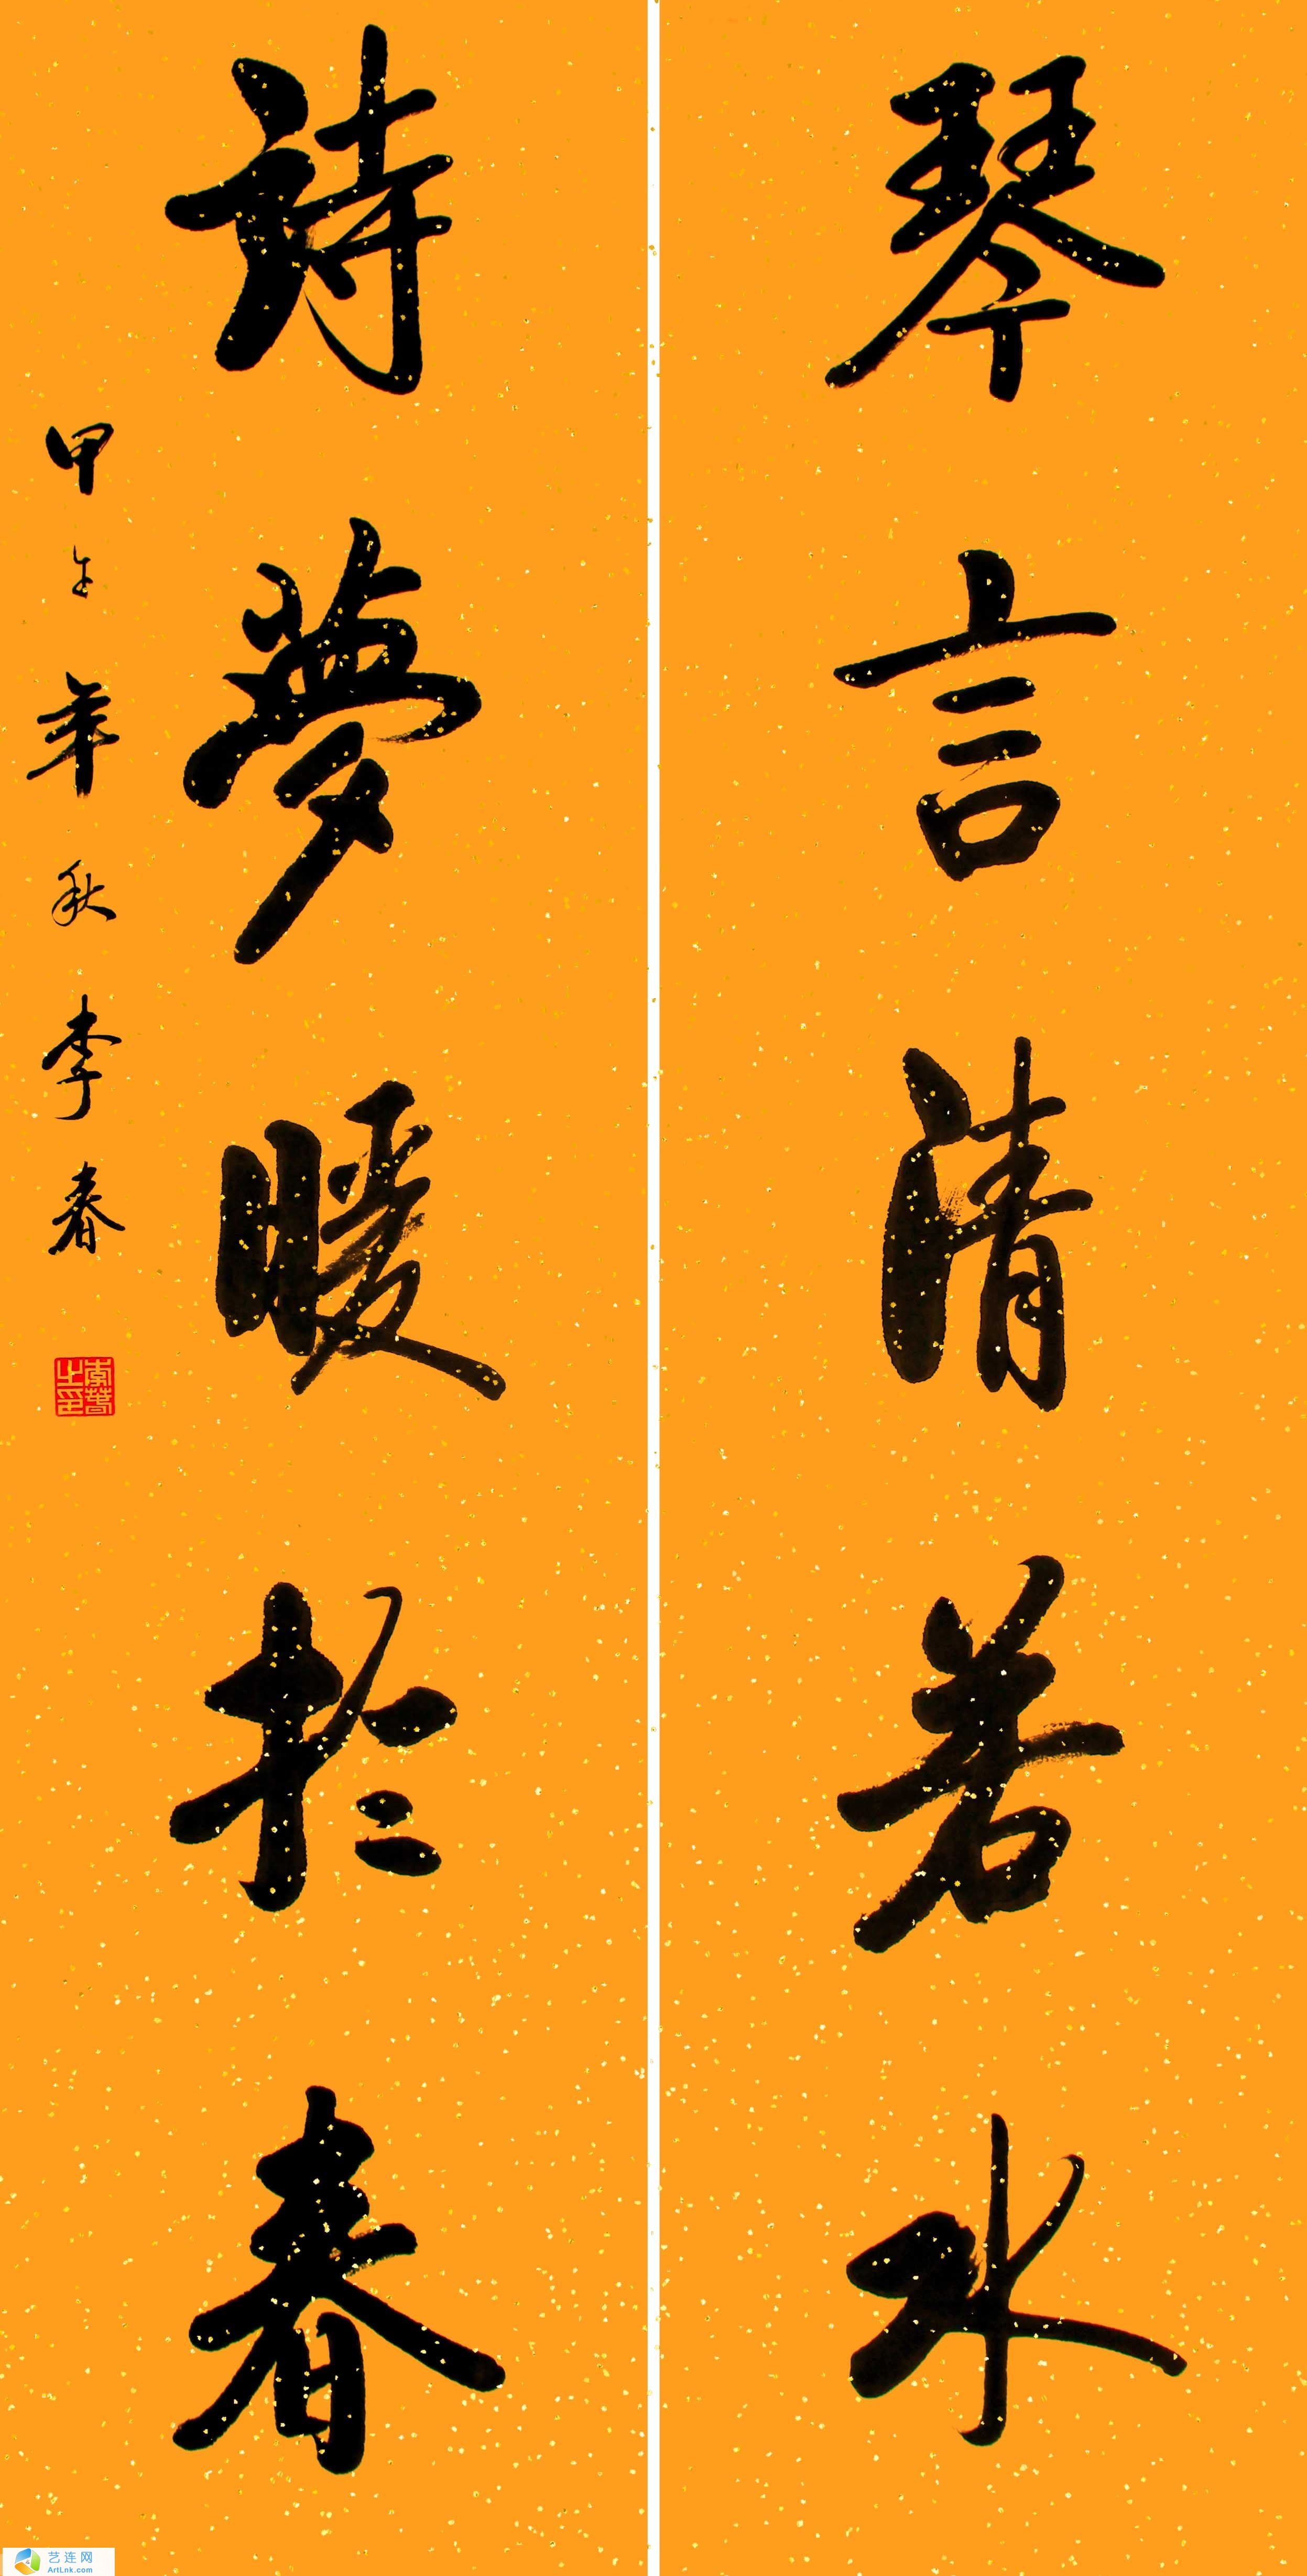 琴言清若水
詩夢暖於春
甲午年秋李春
李春之印
艺连网
ArtLnk.com